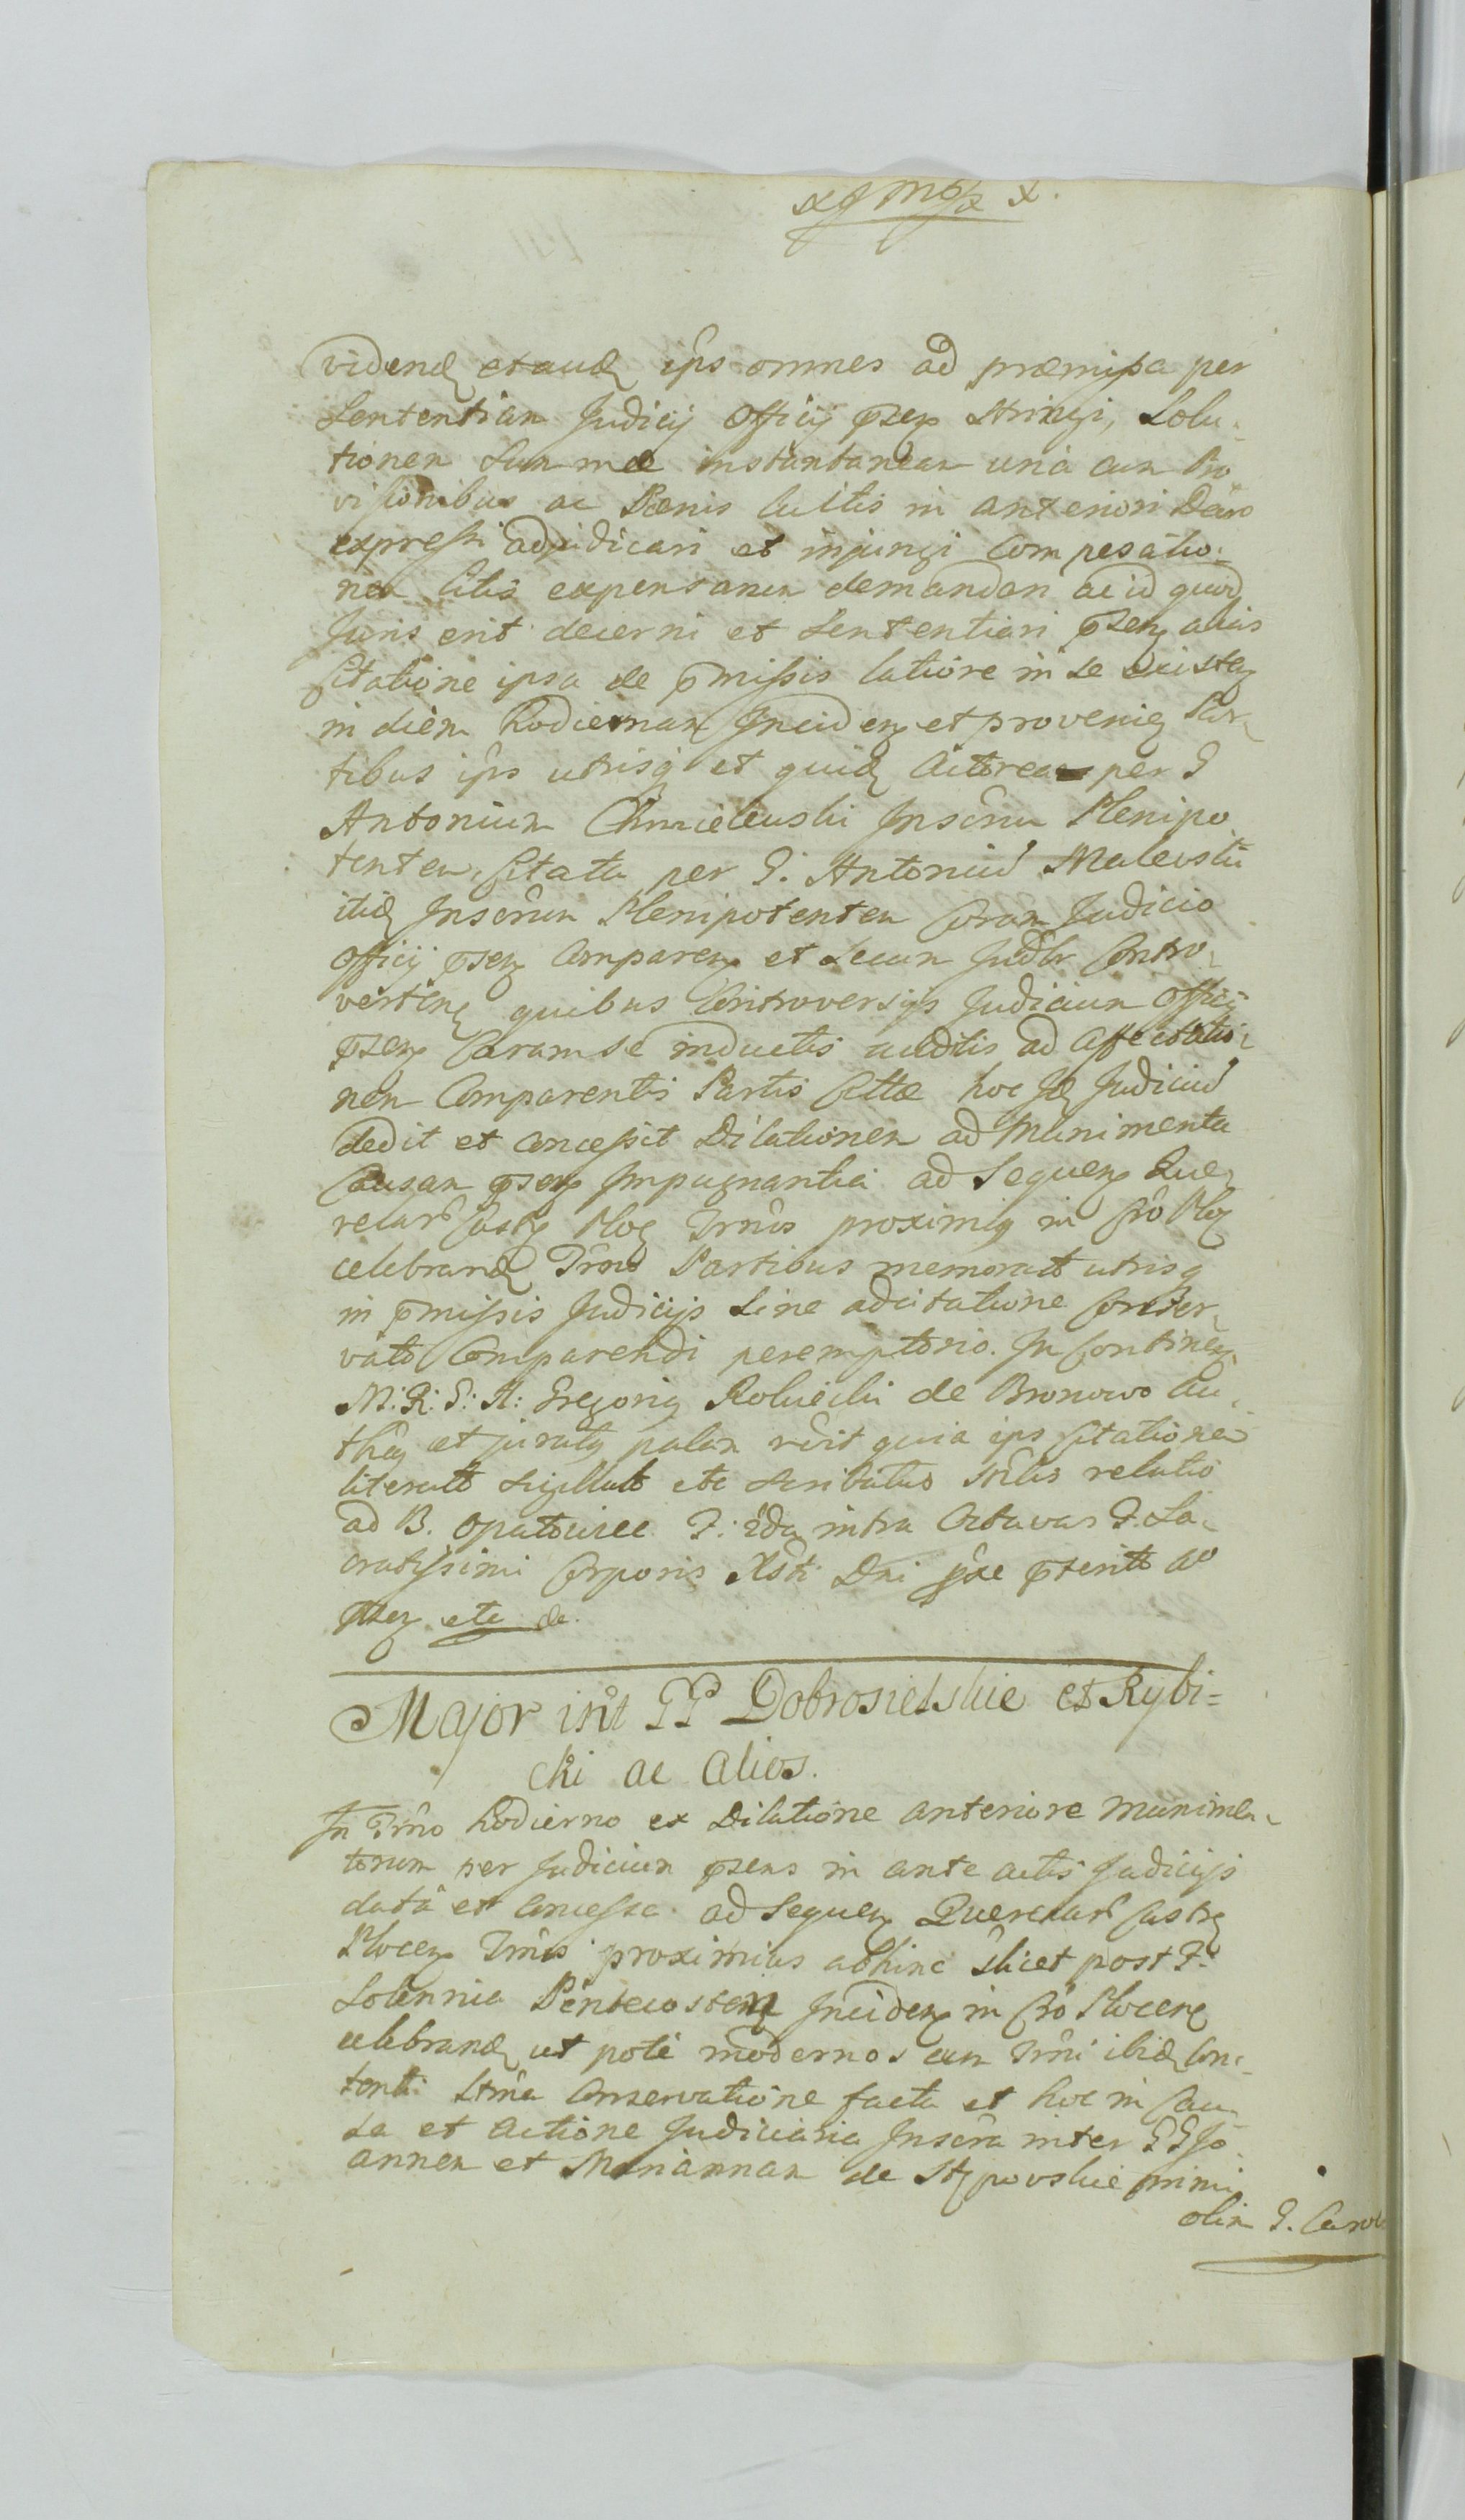 videnđ et auđ ips omnes ad præmissa per
Sententiam Judicij Officij psen stringi, Solu-
tionem Summæ instantaneam una cum Pro
visionibus ac Pœnis luitis in anteriori Dcto
expressi adjudicari et injungi Compesatio-
nem litis expensarum demandari ac id quod
Juris erit decerni et Sententiari psen alias
Citatione ipsa de pmissis latiore in se existen
in diem hodiernam Inciden et provenien Par-
tibus ips utrisq et quid Actorea per G
Antonium Chmielewski Inscrum Plenipo
tentem, Citata per G. Antonium Malewski
itid Inscrum Plenipotentem Coram Judicio
Officij psen Comparen et Secum Judlr Contro-
verten quibus Controversijs Judicium Officij
psen Coram se inductis auditis ad Affectatio-
nem Comparentis Partis Cittæ hoc Id Judicium
dedit et Concessit Dilationem ad Munimenta
Causam psen Impugnantia ad Sequen Que-
relar Castr Ploc Trnos proximiq in Cro Ploc
celebrand Trno Partibus memorats utrisq
in pmissis Judicijs Sine adcitatione Conser-
vato Comparendi peremptorio. In Continen
M: R: G: R: Gregoriq Rokicki de Bronowo Au-
thēq et juratq palam rēvit quia ips Citationem
literats Sigillats etc scribatus relatio
ad B. Opatowiec F: 2da intra Octavas F. Sa-
cratissimi Corporis Xsti Dni pxe pterits ao
psen etc de.
Major int GG Dobrosielskie et Rybi=
cki ac Alios.
In Trno hodierno ex Dilatione anteriore munimen-
torum per Judicium psens in ante actis Judicijs
data et Concessa ad Sequen Querelar Castr
Plocen Trnos proximius abhinc slicet post F.
Solennia Pentecosten Inciden in Cro Plocen
celebrand ut poté modernos cum Trni ibid Con-
tenti Conservatione facta et hoc in Cau-
sa et Actione Judiciaria Inscra inter GG Jo
annem et Mariannam de Stpowskie primi
olim G. Caroli